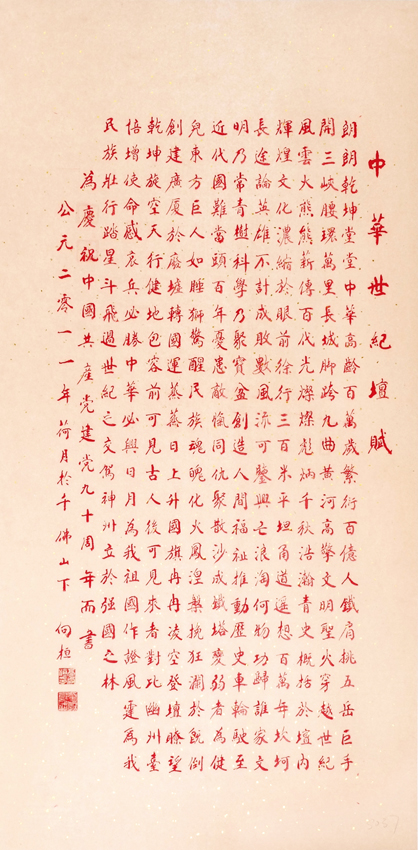 中華世紀壇賦
朗朗乾坤堂堂中華高齡百萬歲繁衍百億人鐵肩挑五岳巨手
開三峽腰環萬里長城腳跨九曲黃河高擎文明聖火穿越世紀
風雲火熊熊薪傳百代光燦燦彪炳千秋浩瀚青史概括於壇內
輝煌文化濃縮於眼前徐行三百米平坦甬道遥想百萬年坎坷
長途論英雄不計成敗數風流可鑒興亡浪淘何物功歸誰家文
明乃常青樹科學乃聚寶盆創造人間福祉推動歷史車輪駛至
近代國難當頭百年憂患敵愾同仇聚散沙成鐵塔變弱者為健
兒東方巨人如睡獅驚醒民族魂魄化火鳳涅槃挽狂瀾於既倒
創建廣厦於廢墟轉國運蒸蒸日上升國旗冉冉凌空登壇瞭望
乾坤旋空天行健地包容前可見古人後可見來者對比幽州臺
悟增使命感哀兵必勝中華必興日月為我祖國作證風雲為我
民族壯行踏星斗飛過世紀之交駕神州立於強國之林
為慶祝中國共產党建党九十周年而書
公元二零一一年荷月於千佛山下 向桓